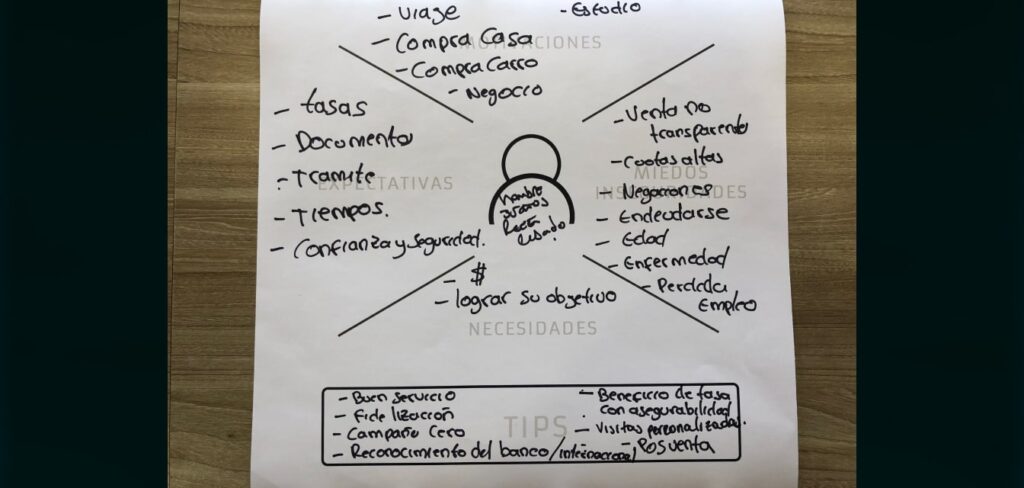 - Viaje
- Estudio
- Compra Casa
MOTIVACIONES
- Compra Carro
- Negocio
- tasas
- Documento
- Tramite
EXPECTATIVAS
- Tiempos.
- Confianza y seguridad.
- Venta no
transparente
- Cuotas altas
MIEDOS
INSEGURIDADES
- Negaciones
- Endeudarse
- Edad
- Enfermedad
- Perdida
Empleo
Hombre
años
Recien
casado
- $
- lograr su objetivo
NECESIDADES
TIPS
- Buen servicio
- Fidelización
- Campaña Cero
- Reconocimiento del banco/internacional
- Beneficio de tasa
con asegurabilidad
- Visitas personalizadas.
- Posventa